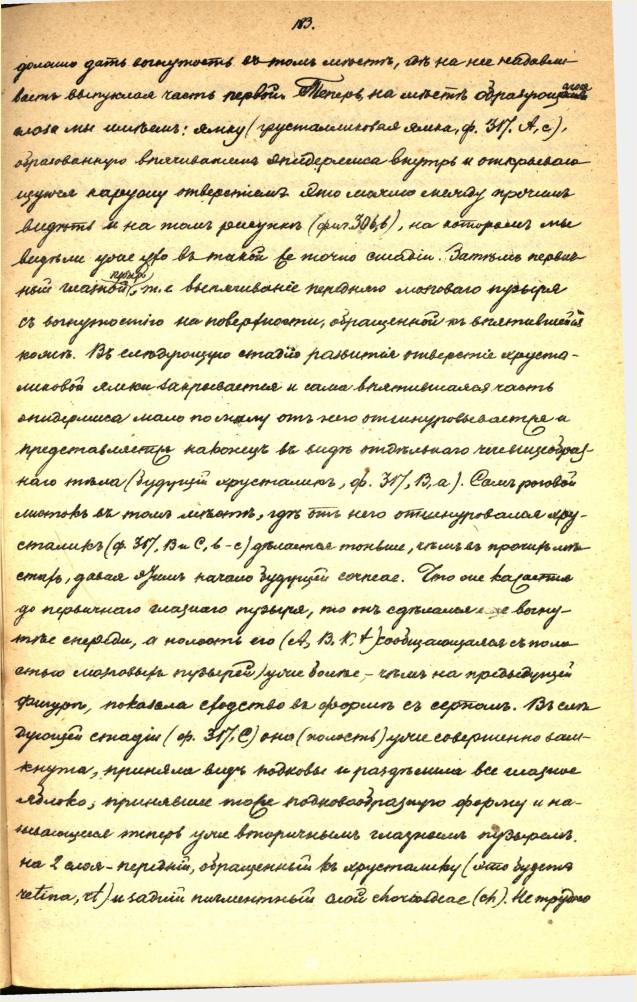 183.
должно дать вогнутость въ томъ мѣстѣ, гдѣ на нее надавли-
ваетъ выпуклая часть первой. Теперь, на мѣстѣ образующаго
глаза мы имѣемъ: ямку (хрусталиковая ямка, ф. 317. А, с),
образованную впячиваніемъ эпидермиса внутрь и открываю-
щуюся наружу отверстіемъ. Это можно между прочимъ
видѣть и на томъ рисункѣ (фиг. 306, b), на которомъ мы
видѣли уже ухо въ такой же точно стадіи. Затѣмъ первич-
ный глазной пузырь, т. е. выпячиваніе передняго мозговаго пузыря
съ вогнутостію на поверхности, обращенной къ впятившейся
кожѣ. Въ слѣдующую стадію развитія отверстіе хруста-
ликовой ямки закрывается и сама впятившаяся часть
эпидермиса мало по малу отъ него отшнуровывается и
представляется наконецъ въ видѣ отдѣльнаго чечевицеобраз-
наго тѣла (будущій хрусталикъ, ф. 317, В, а). Самъ роговой
листокъ въ томъ мѣстѣ, гдѣ отъ него отшнуровался хру-
сталикъ (ф. 317, В и С, b-c) дѣлается тоньше, чѣмъ въ прочихъ мѣ-
стахъ, давая этимъ начало будущей corneae. Что же касается
до первичнаго глазнаго пузыря, то онъ сдѣлался еще вогну-
тѣе спереди, а полость его (А, В, К, t) сообщающаяся съ поло-
стью мозговыхъ пузырей) уже болѣе, чѣмъ на предыдущей
фигурѣ, показала сходство въ формѣ съ серпомъ. Въ слѣ-
дующей стадіи (ф. 317, С) она (полость) уже совершенно зам-
кнута, приняла видъ подковы и раздѣлила все глазное
яблоко, принявшее тоже подковообразную форму и на-
зывающееся теперь уже вторичнымъ глазнымъ пузыремъ.
на 2 слоя - передній, обращенный къ хрусталику (это будетъ
retina, rt) и задній пигментный слой chorioideae (ch). Не трудно